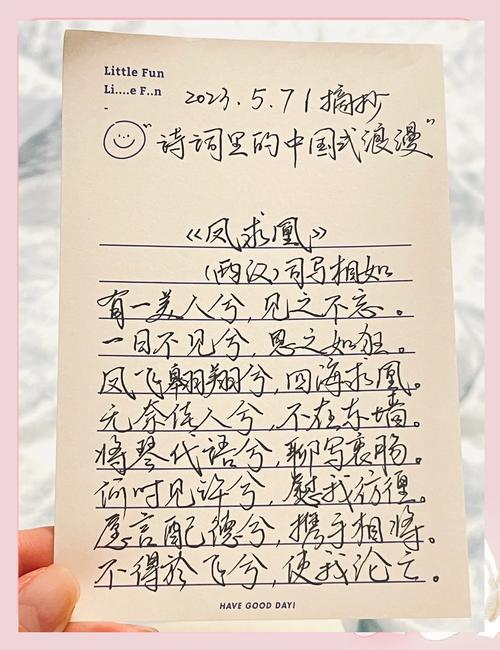 Little Fun
Li....e F..n
-
2023.5.7 / 摘抄
“诗词里的中国式浪漫”
《凤求凰》
(西汉)司马相如
有一美人兮,见之不忘。
一日不见兮,思之如狂。
凤飞翱翔兮,四海求凰。
无奈佳人兮,不在东墙。
将琴代语兮,聊写衷肠。
何时见许兮,慰我彷徨。
愿言配德兮,携手相将。
不得於飞兮,使我沦亡。
HAVE GOOD DAY!